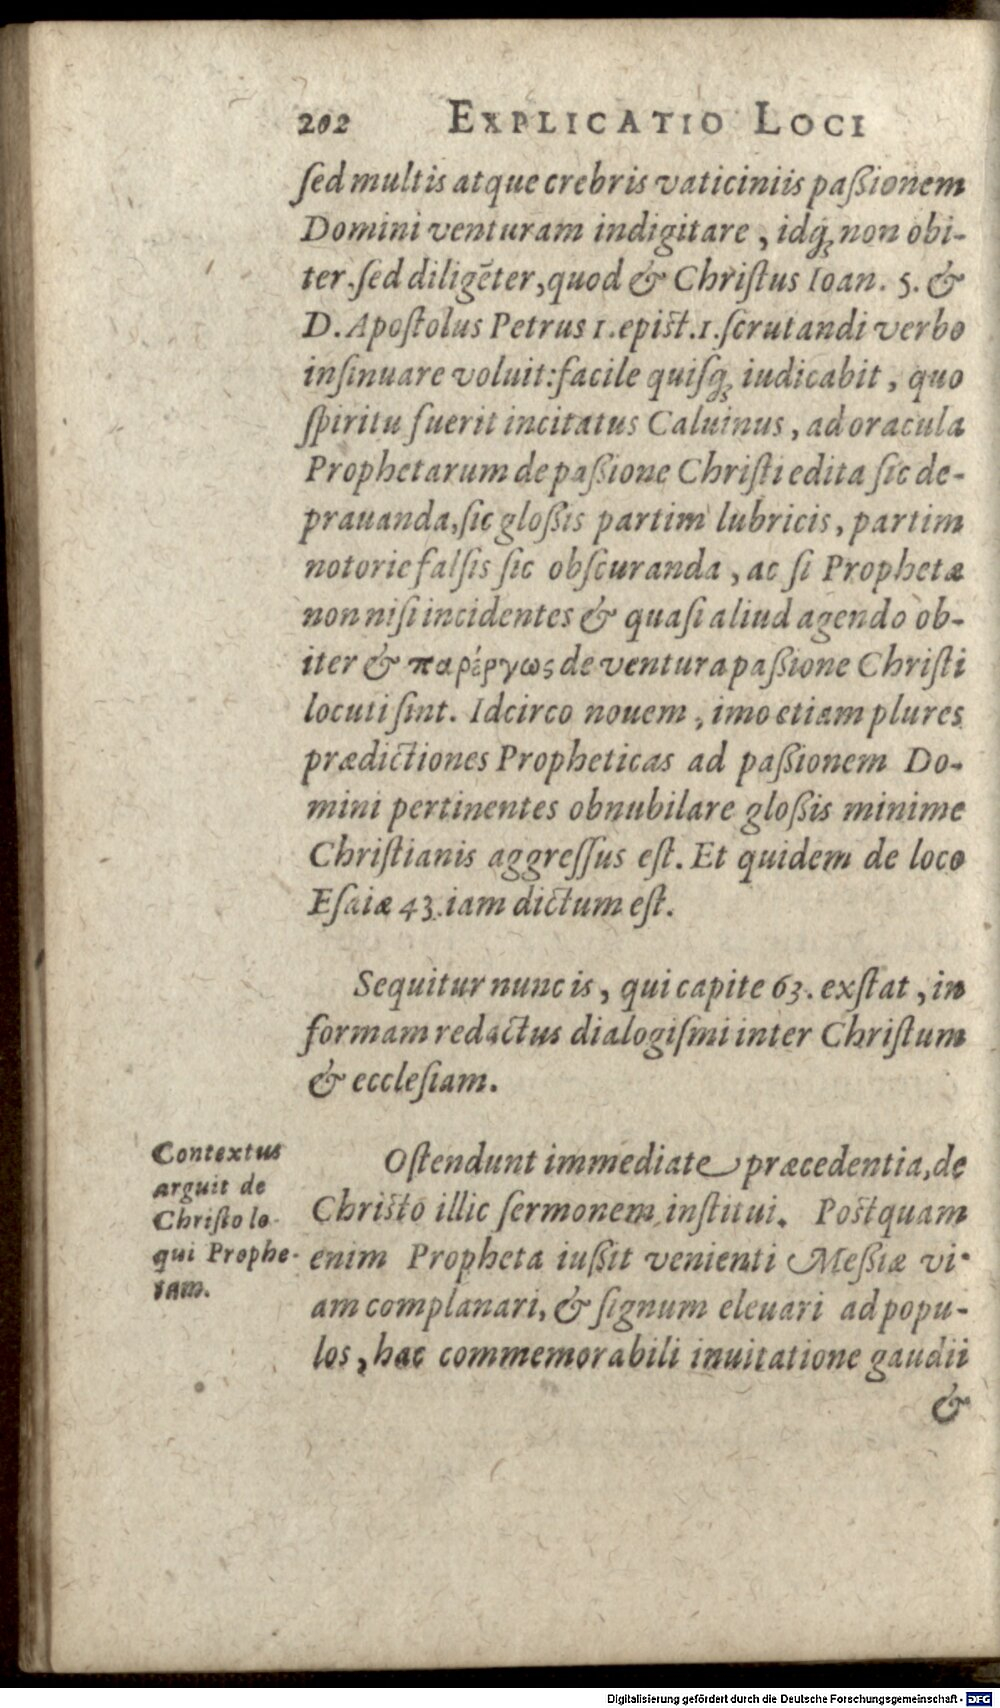 202 EXPLICATIO LOCI
ſed multis atque crebris vaticiniis paßionem
Domini venturam indigitare, idq́ꝫ non obi-
ter, ſed diligēter, quod & Chriſtus Ioan. 5. &
D. Apoſtolus Petrus 1. epiſt. 1. ſcrutandi verbo
inſinuare voluit: facile quiſq́ꝫ iudicabit, quo
ſpiritu fuerit incitatus Caluinus, ad oracula
Prophetarum de paßione Chriſti edita ſic de-
prauanda, ſic gloßis partim lubricis, partim
notorie falſis ſic obſcuranda, ac ſi Prophetæ
non niſi incidentes & quaſi aliud agendo ob-
iter & παρέργως de ventura paßione Chriſti
locuti ſint. Idcirco nouem, imo etiam plures
prædictiones Propheticas ad paßionem Do-
mini pertinentes obnubilare gloßis minime
Chriſtianis aggreſſus eſt. Et quidem de loco
Eſaiæ 43. iam dictum eſt.
Sequitur nunc is, qui capite 63. exſtat, in
formam redactus dialogiſmi inter Chriſtum
& eccleſiam.
Contextus
arguit de
Chriſto lo-
qui Prophe-
tam.
Oſtendunt immediate præcedentia, de
Chriſto illic ſermonem inſtitui. Poſtquam
enim Propheta iußit venienti Meßiæ vi-
am complanari, & ſignum eleuari ad popu-
los, hac commemorabili inuitatione gaudii
&
Digitalisierung gefördert durch die Deutsche Forschungsgemeinschaft - DFG